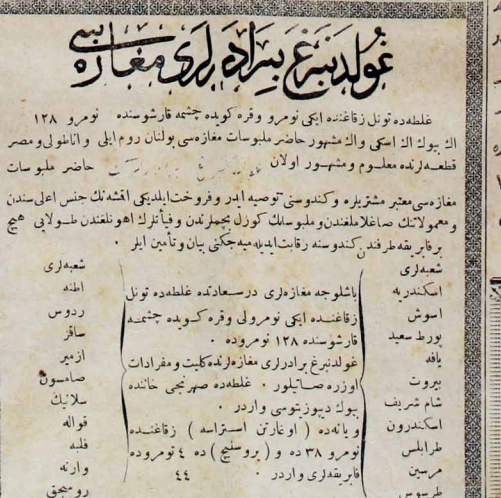 غولدنبرغ برادرلری مغازه سی
غلطه‌ده تونل زقاغنده ایکی نومرو وقره کویده چشمه قارشوسنده نومرو ۱۲۸
اڭ بیوك اڭ اسکی واڭ مشهور حاضر ملبوسات مغازه‌سی بولنان روم ایلی و اناطولی و مصر
قطعه‌لرنده معلوم و مشهور اولان حاضر ملبوسات
مغازه‌سی معتبر مشتریلره و کندوسنی توصیه ایدر و فروخت ایلدیکی اقشه‌نك جنس اعلی سندن
و معمولاتنك صاغلاملغندن و ملبوساتك کوزل بچملرندن و فیأتلرك اهونلغندن طولایی هیچ
بر فابریقه طرفندن کندوسنه رقابت ایدیله‌میه‌جکنی بیان و تأمین ایلر ۰
شعبه‌لری
اسکندریه
اسوش
پورط سعید
یافه
بیروت
شام شریف
اسکندرون
طرابلس
مرسین
طرسوس
باشلوجه مغازه‌لری درسعادتده غلطه‌ده تونل
زقاغنده ایکی نومرولی وقره کویده چشمه
قارشوسنده ۱۲۸ نومروده ۰
غولدنبرغ برادرلری مغازه‌لرنده کلیت و مفرادات
اوزره صاتیلور ۰ غلطه‌ده صهرنجی خاننده
بیوك دیپوزیتوسی واردر ۰
ویانه‌ده ( اوغارتن استراسه ) زقاغنده
نومرو ۳۸ ده و ( بروسنیچ ) ده ٤ نومروده
فابریقه‌لری واردر ۰ ٤٤
شعبه‌لری
اطنه
ردوس
ساقز
ازمیر
صامسون
سلانیك
قواله
فلبه
وارنه
روسجق